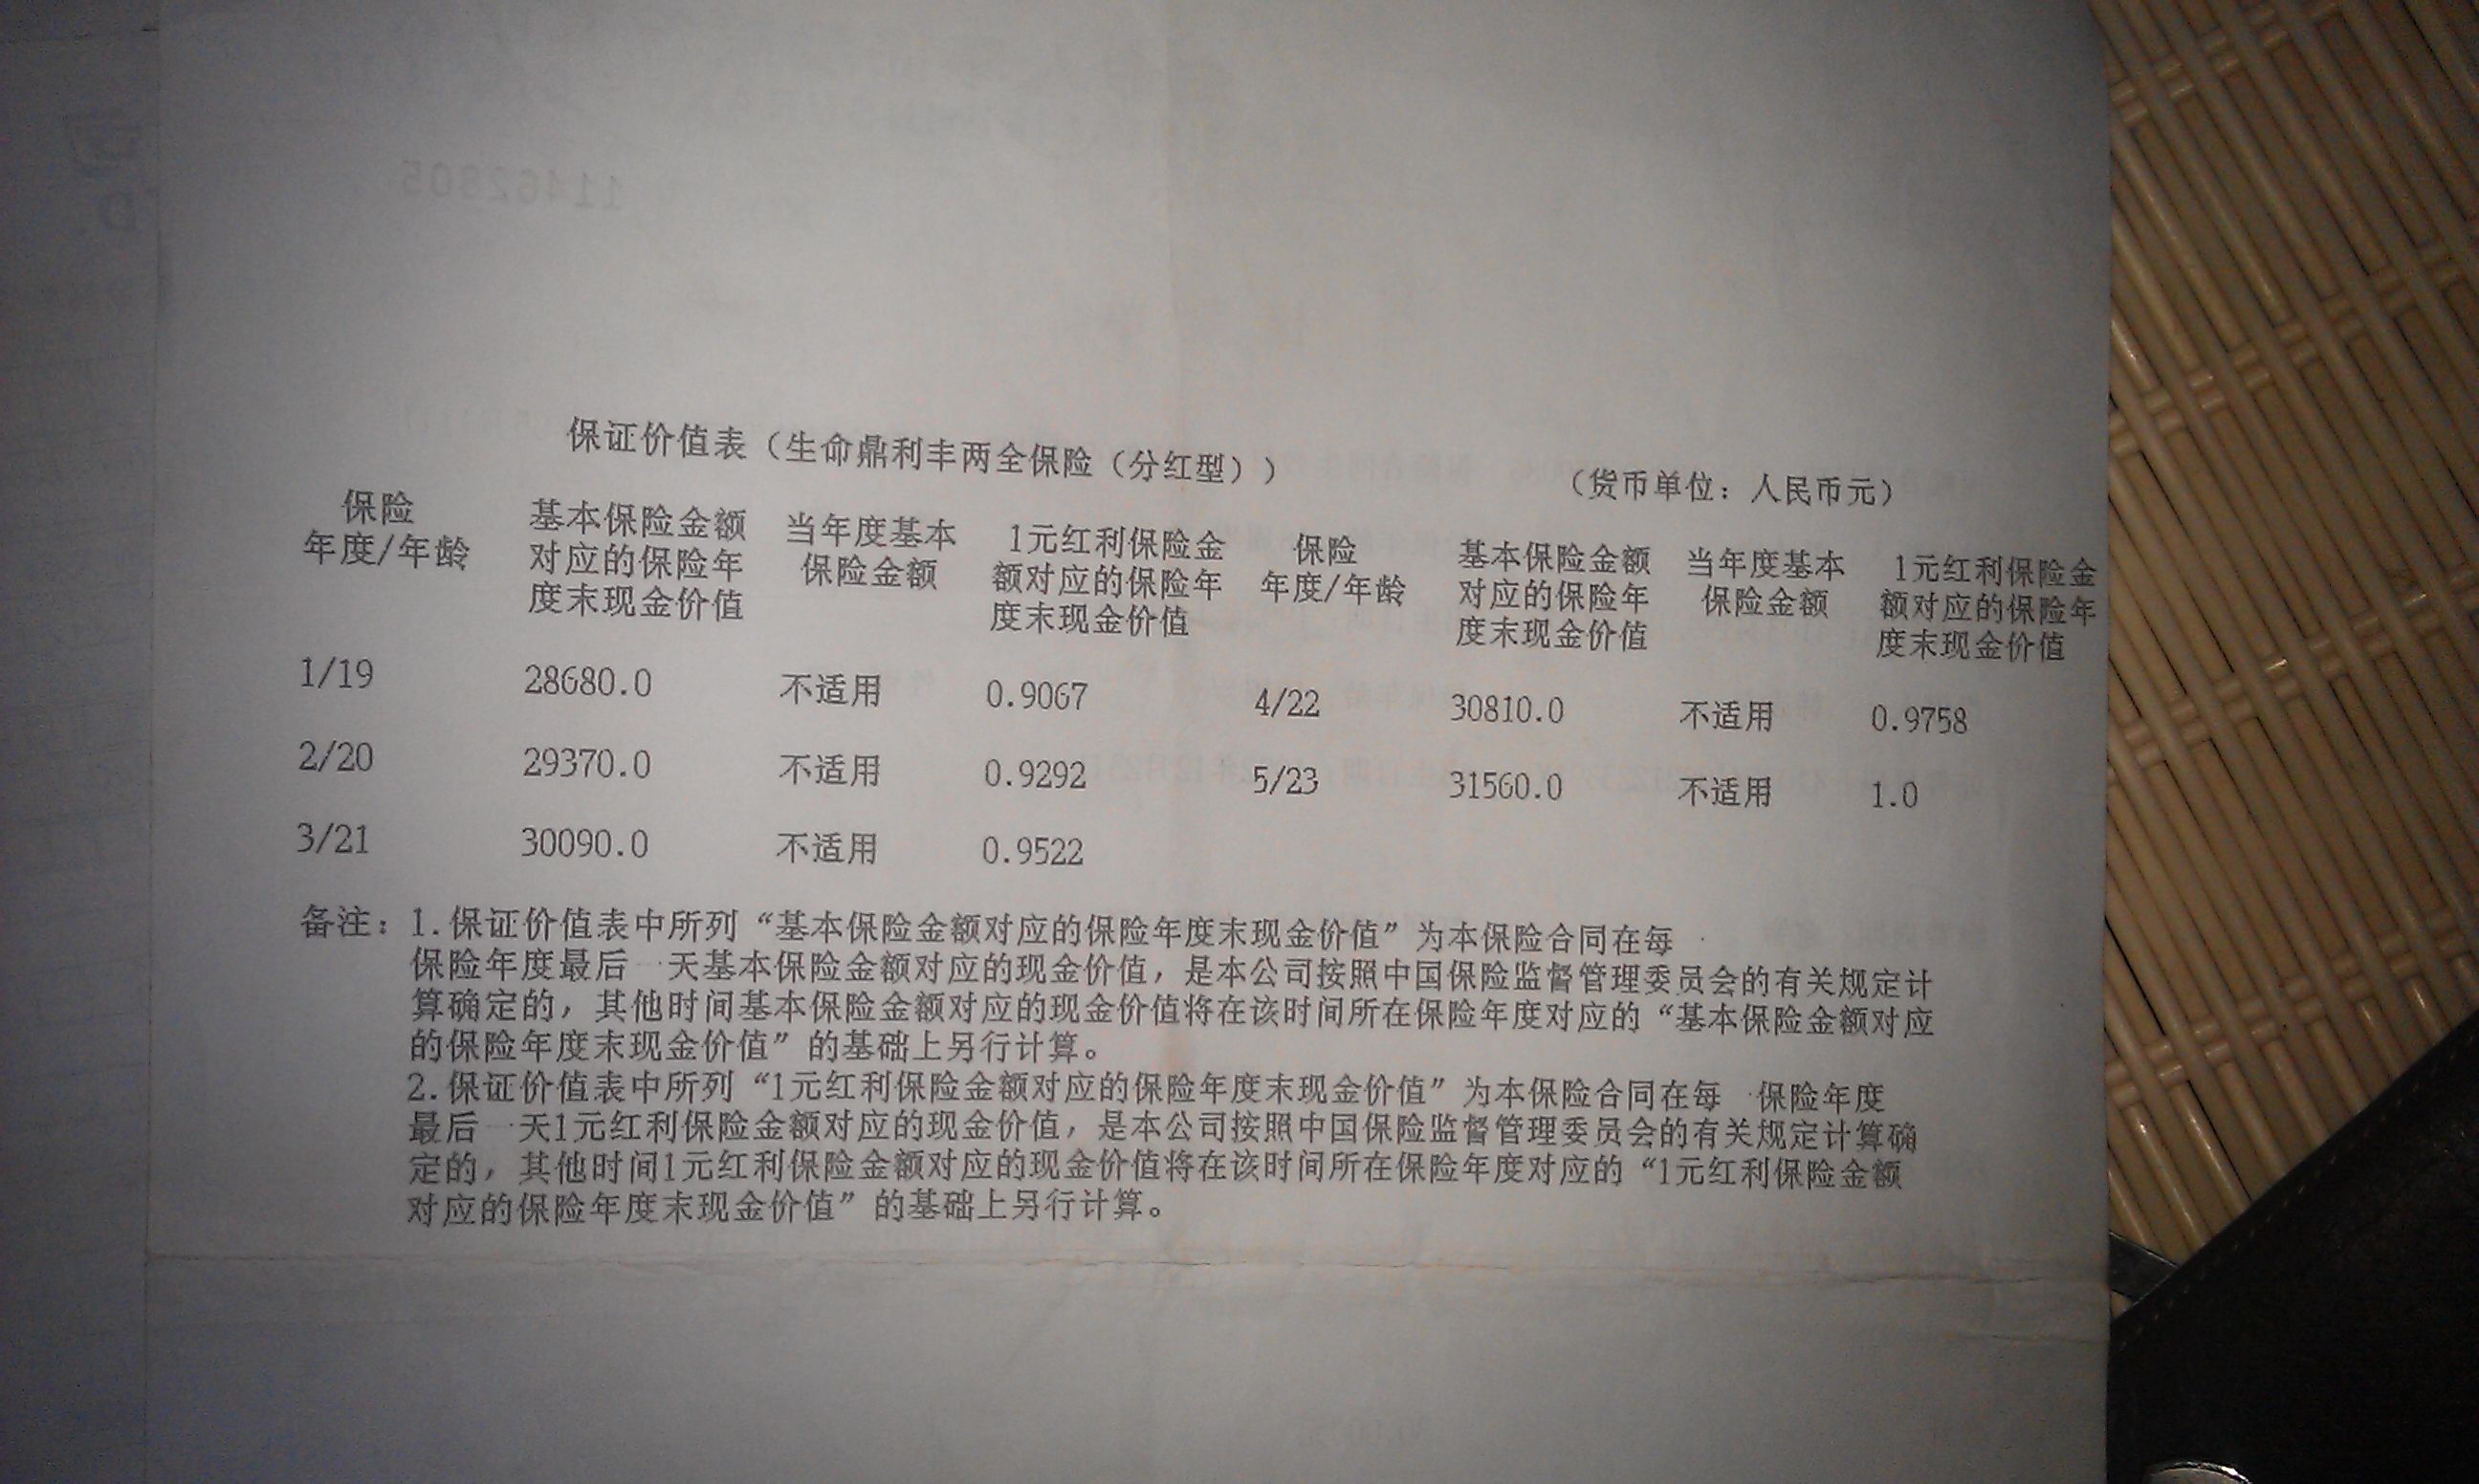 保证价值表（生命鼎利丰两全保险（分红型））
（货币单位：人民币元）
保险 基本保险金额 当年度基本 1元红利保险金 保险 基本保险金额 当年度基本 1元红利保险金
年度/年龄 对应的保险年 保险金额 额对应的保险年 年度/年龄 对应的保险年 保险金额 额对应的保险年
度末现金价值 度末现金价值 度末现金价值 度末现金价值
1/19 28680.0 不适用 0.9067 4/22 30810.0 不适用 0.9758
2/20 29370.0 不适用 0.9292 5/23 31560.0 不适用 1.0
3/21 30090.0 不适用 0.9522
备注：1.保证价值表中所列“基本保险金额对应的保险年度末现金价值”为本保险合同在每
保险年度最后一天基本保险金额对应的现金价值，是本公司按照中国保险监督管理委员会的有关规定计
算确定的，其他时间基本保险金额对应的现金价值将在该时间所在保险年度对应的“基本保险金额对应
的保险年度末现金价值”的基础上另行计算。
2.保证价值表中所列“1元红利保险金额对应的保险年度末现金价值”为本保险合同在每一保险年度
最后一天1元红利保险金额对应的现金价值，是本公司按照中国保险监督管理委员会的有关规定计算确
定的，其他时间1元红利保险金额对应的现金价值将在该时间所在保险年度对应的“1元红利保险金额
对应的保险年度末现金价值”的基础上另行计算。